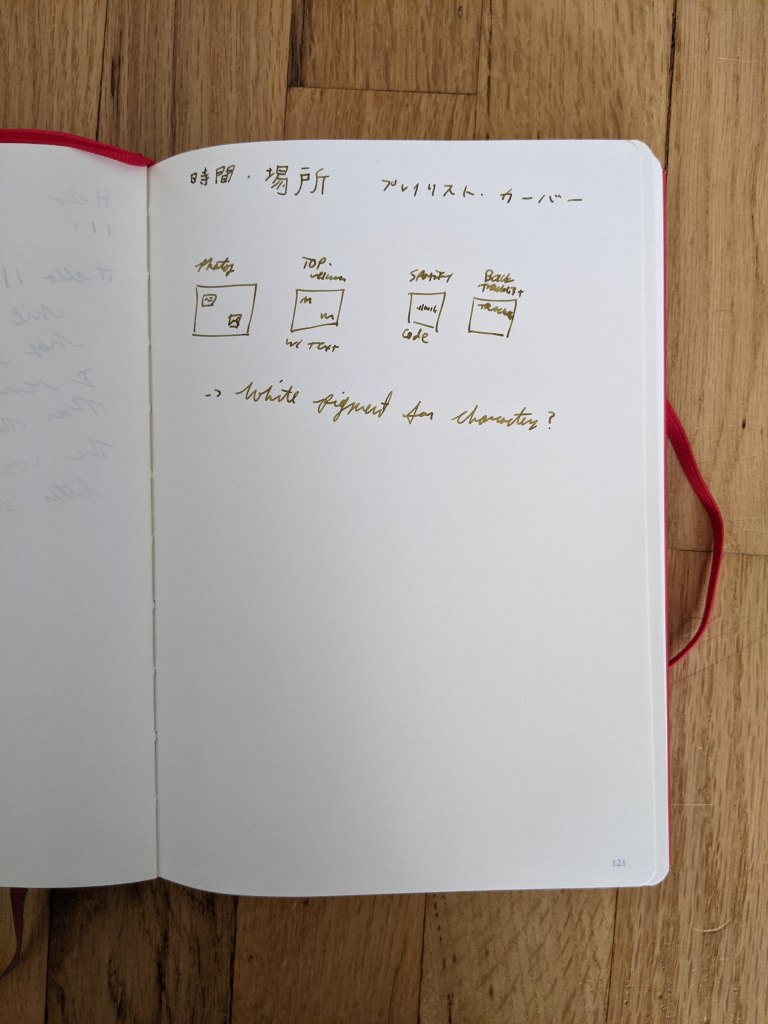 時間・場所 プレイリスト・カーバー
Photos TOP. SPOTIFY Back
vellum Tracklist
TRACKS
W/ TEXT Code
-> White pigment for characters?
121
Hello
Hello